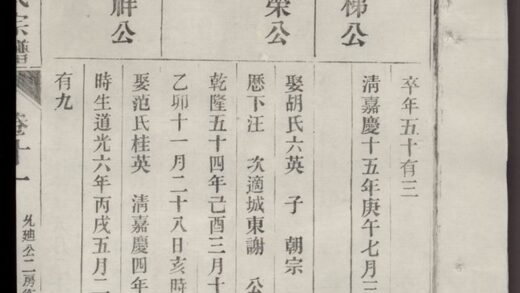 卒年五十有三
清嘉慶十五年庚午七月三
娶胡氏六英 子 朝宗
厯下汪 次適城東謝 公
乾隆五十四年己酉三月十
乙卯十一月二十八日亥時
娶范氏桂英 清嘉慶四年
時生道光六年丙戌五月二
有九
梯公
榮公
公
氏宗譜
卷十一
公二房